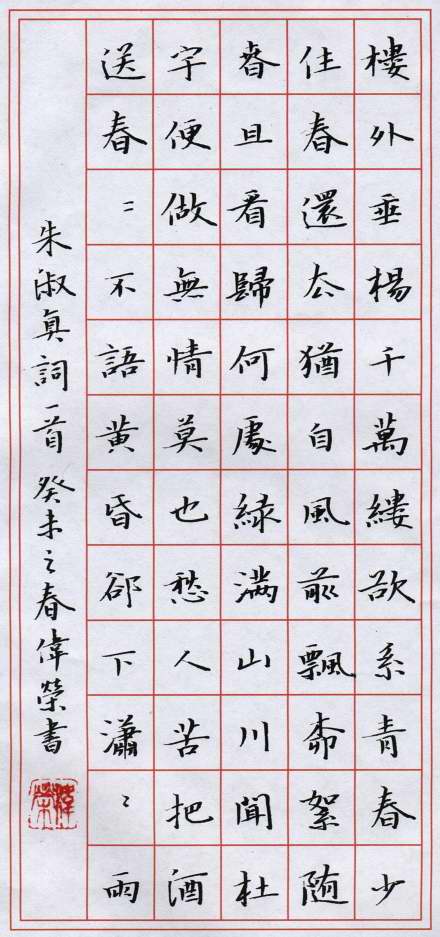 樓外垂楊千萬縷欲系青春少
住春還去猶自風前飄柳絮随
春且看歸何處緑滿山川聞杜
宇便做無情莫也愁人苦把酒
送春〻不語黄昏卻下瀟〻雨
朱淑真詞一首 癸未之春偉榮書
偉榮